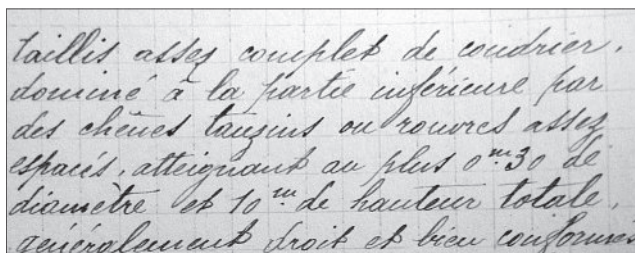 taillis assez complet de coudrier,
dominé à la partie inférieure par
des chênes tauzins ou rouvres assez
espacés, atteignant au plus 0m30 de
diamètre et 10m de hauteur totale,
généralement droit et bien conformés